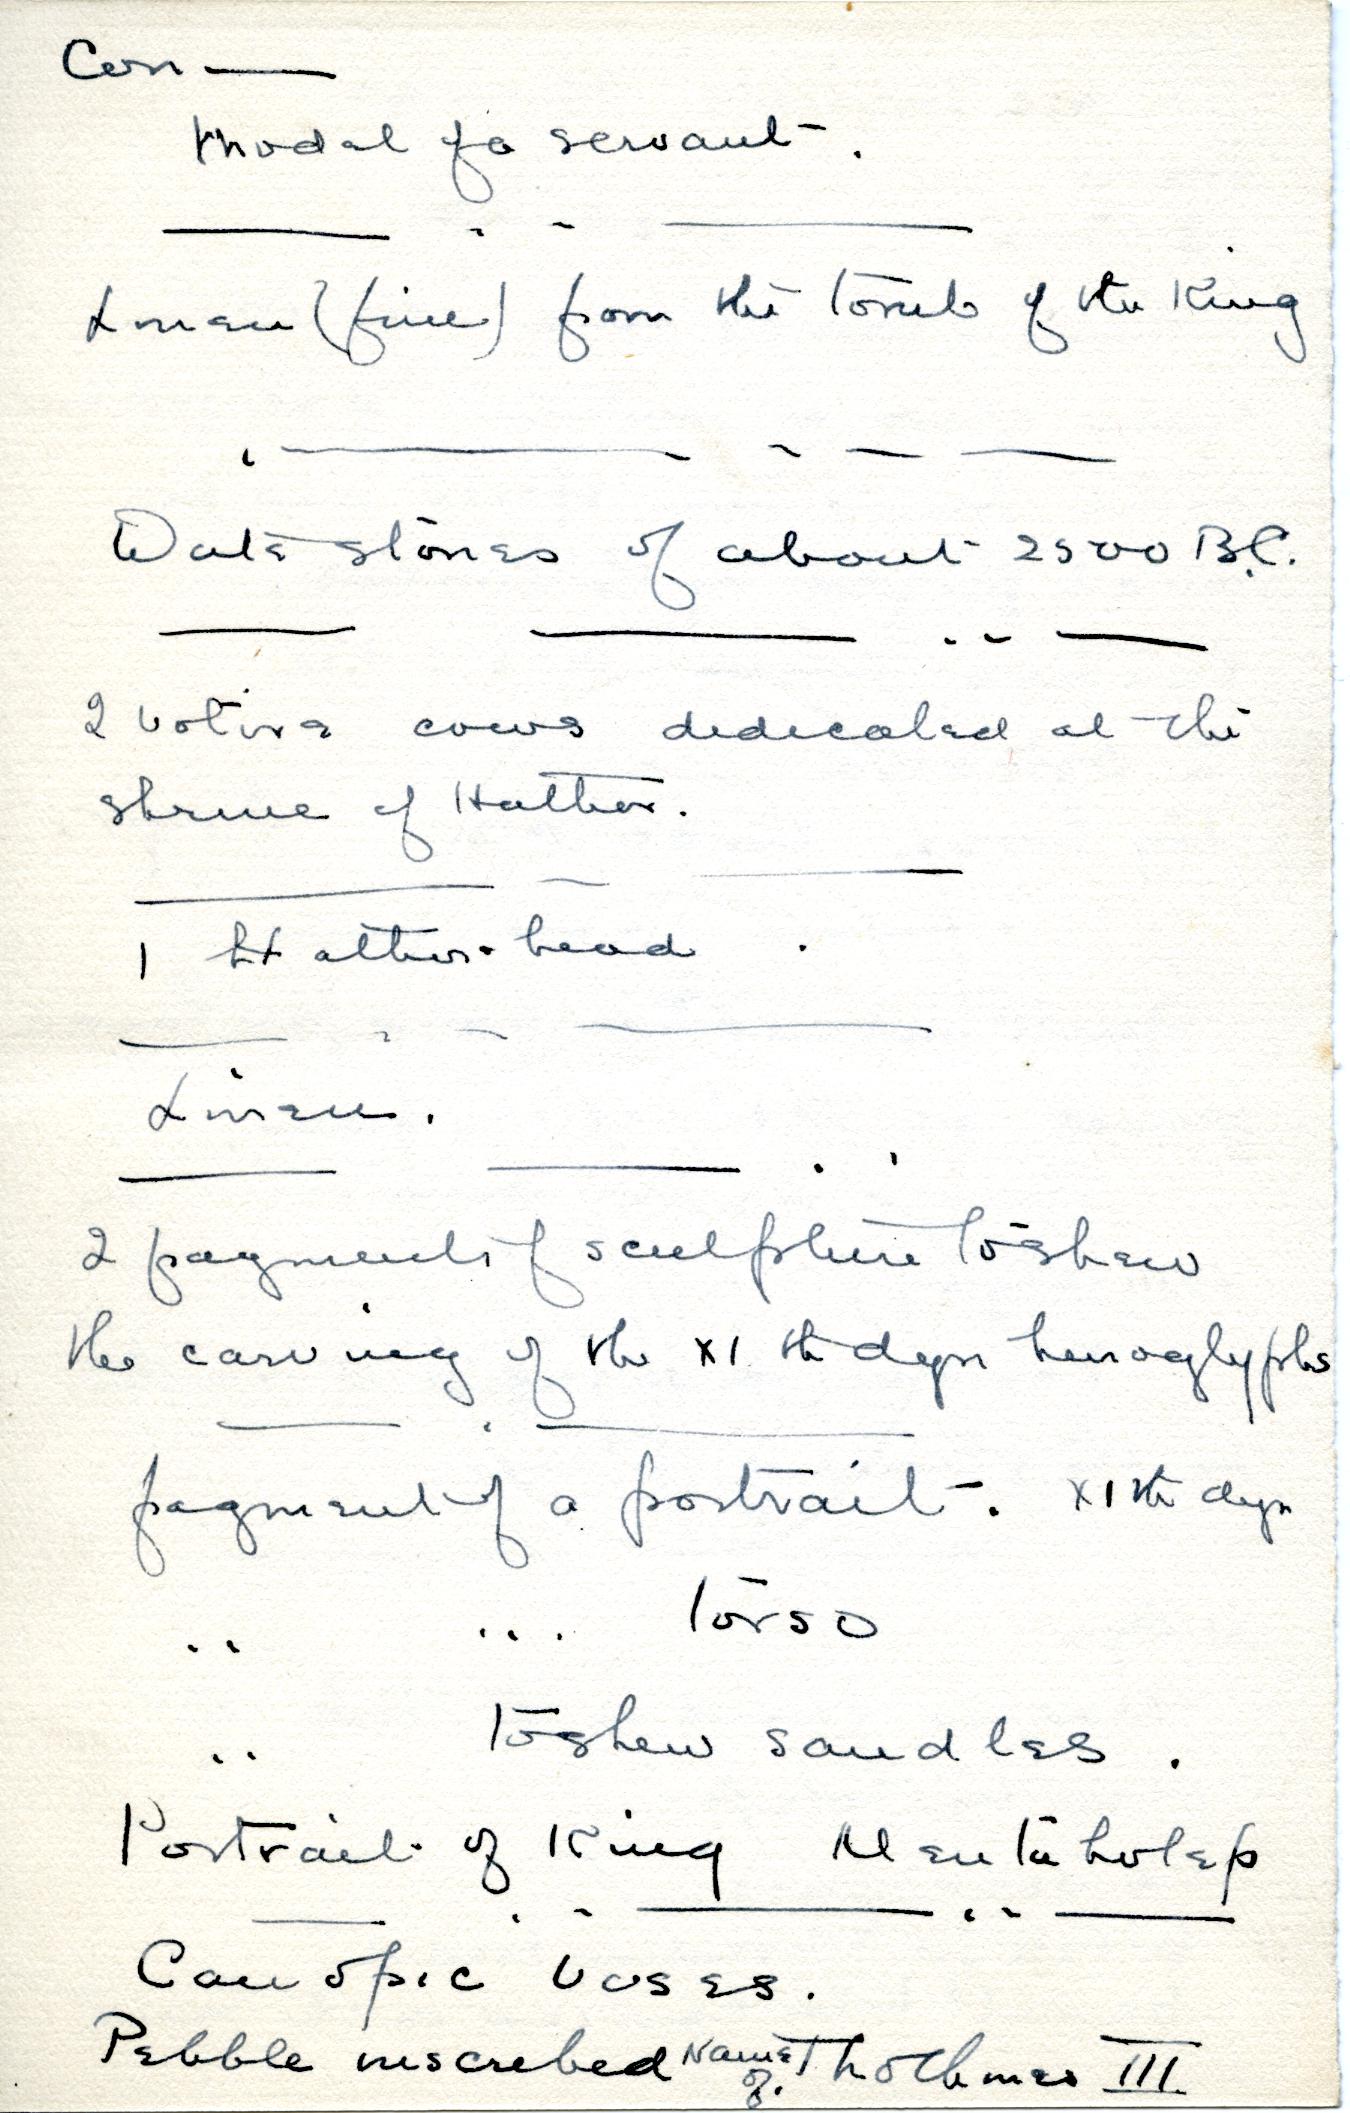 Con —
Model of a servant.
Linen (fine) from the tomb of the King
Date stones of about 2500 B.C.
2 votive cows dedicated at the
shrine of Hathor.
1 Hathor-head .
Linen.
2 fragments of sculpture to shew
the carving of the XI th dyn hieroglyphs
fragment of a portrait. XIth dyn
.. ... torso
.. to shew sandles.
Portrait of King Mentuhotep
Canopic vases.
Pebble inscribed name of Thothmes III.